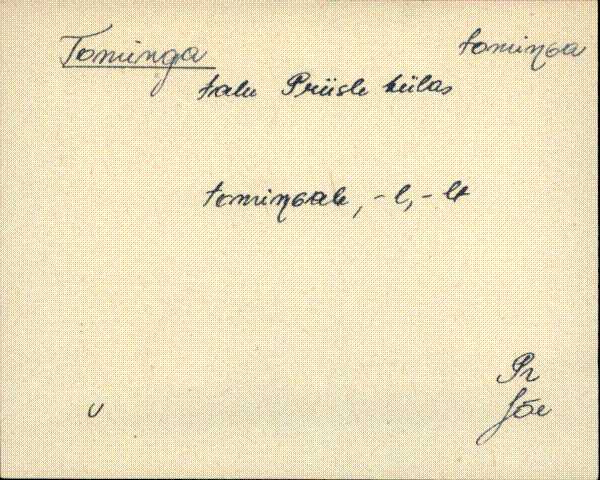 Tominga tomiŋɢa
talu Prüsle külas
tomiŋɢale, -l, -lt
Pr
Jõe
v